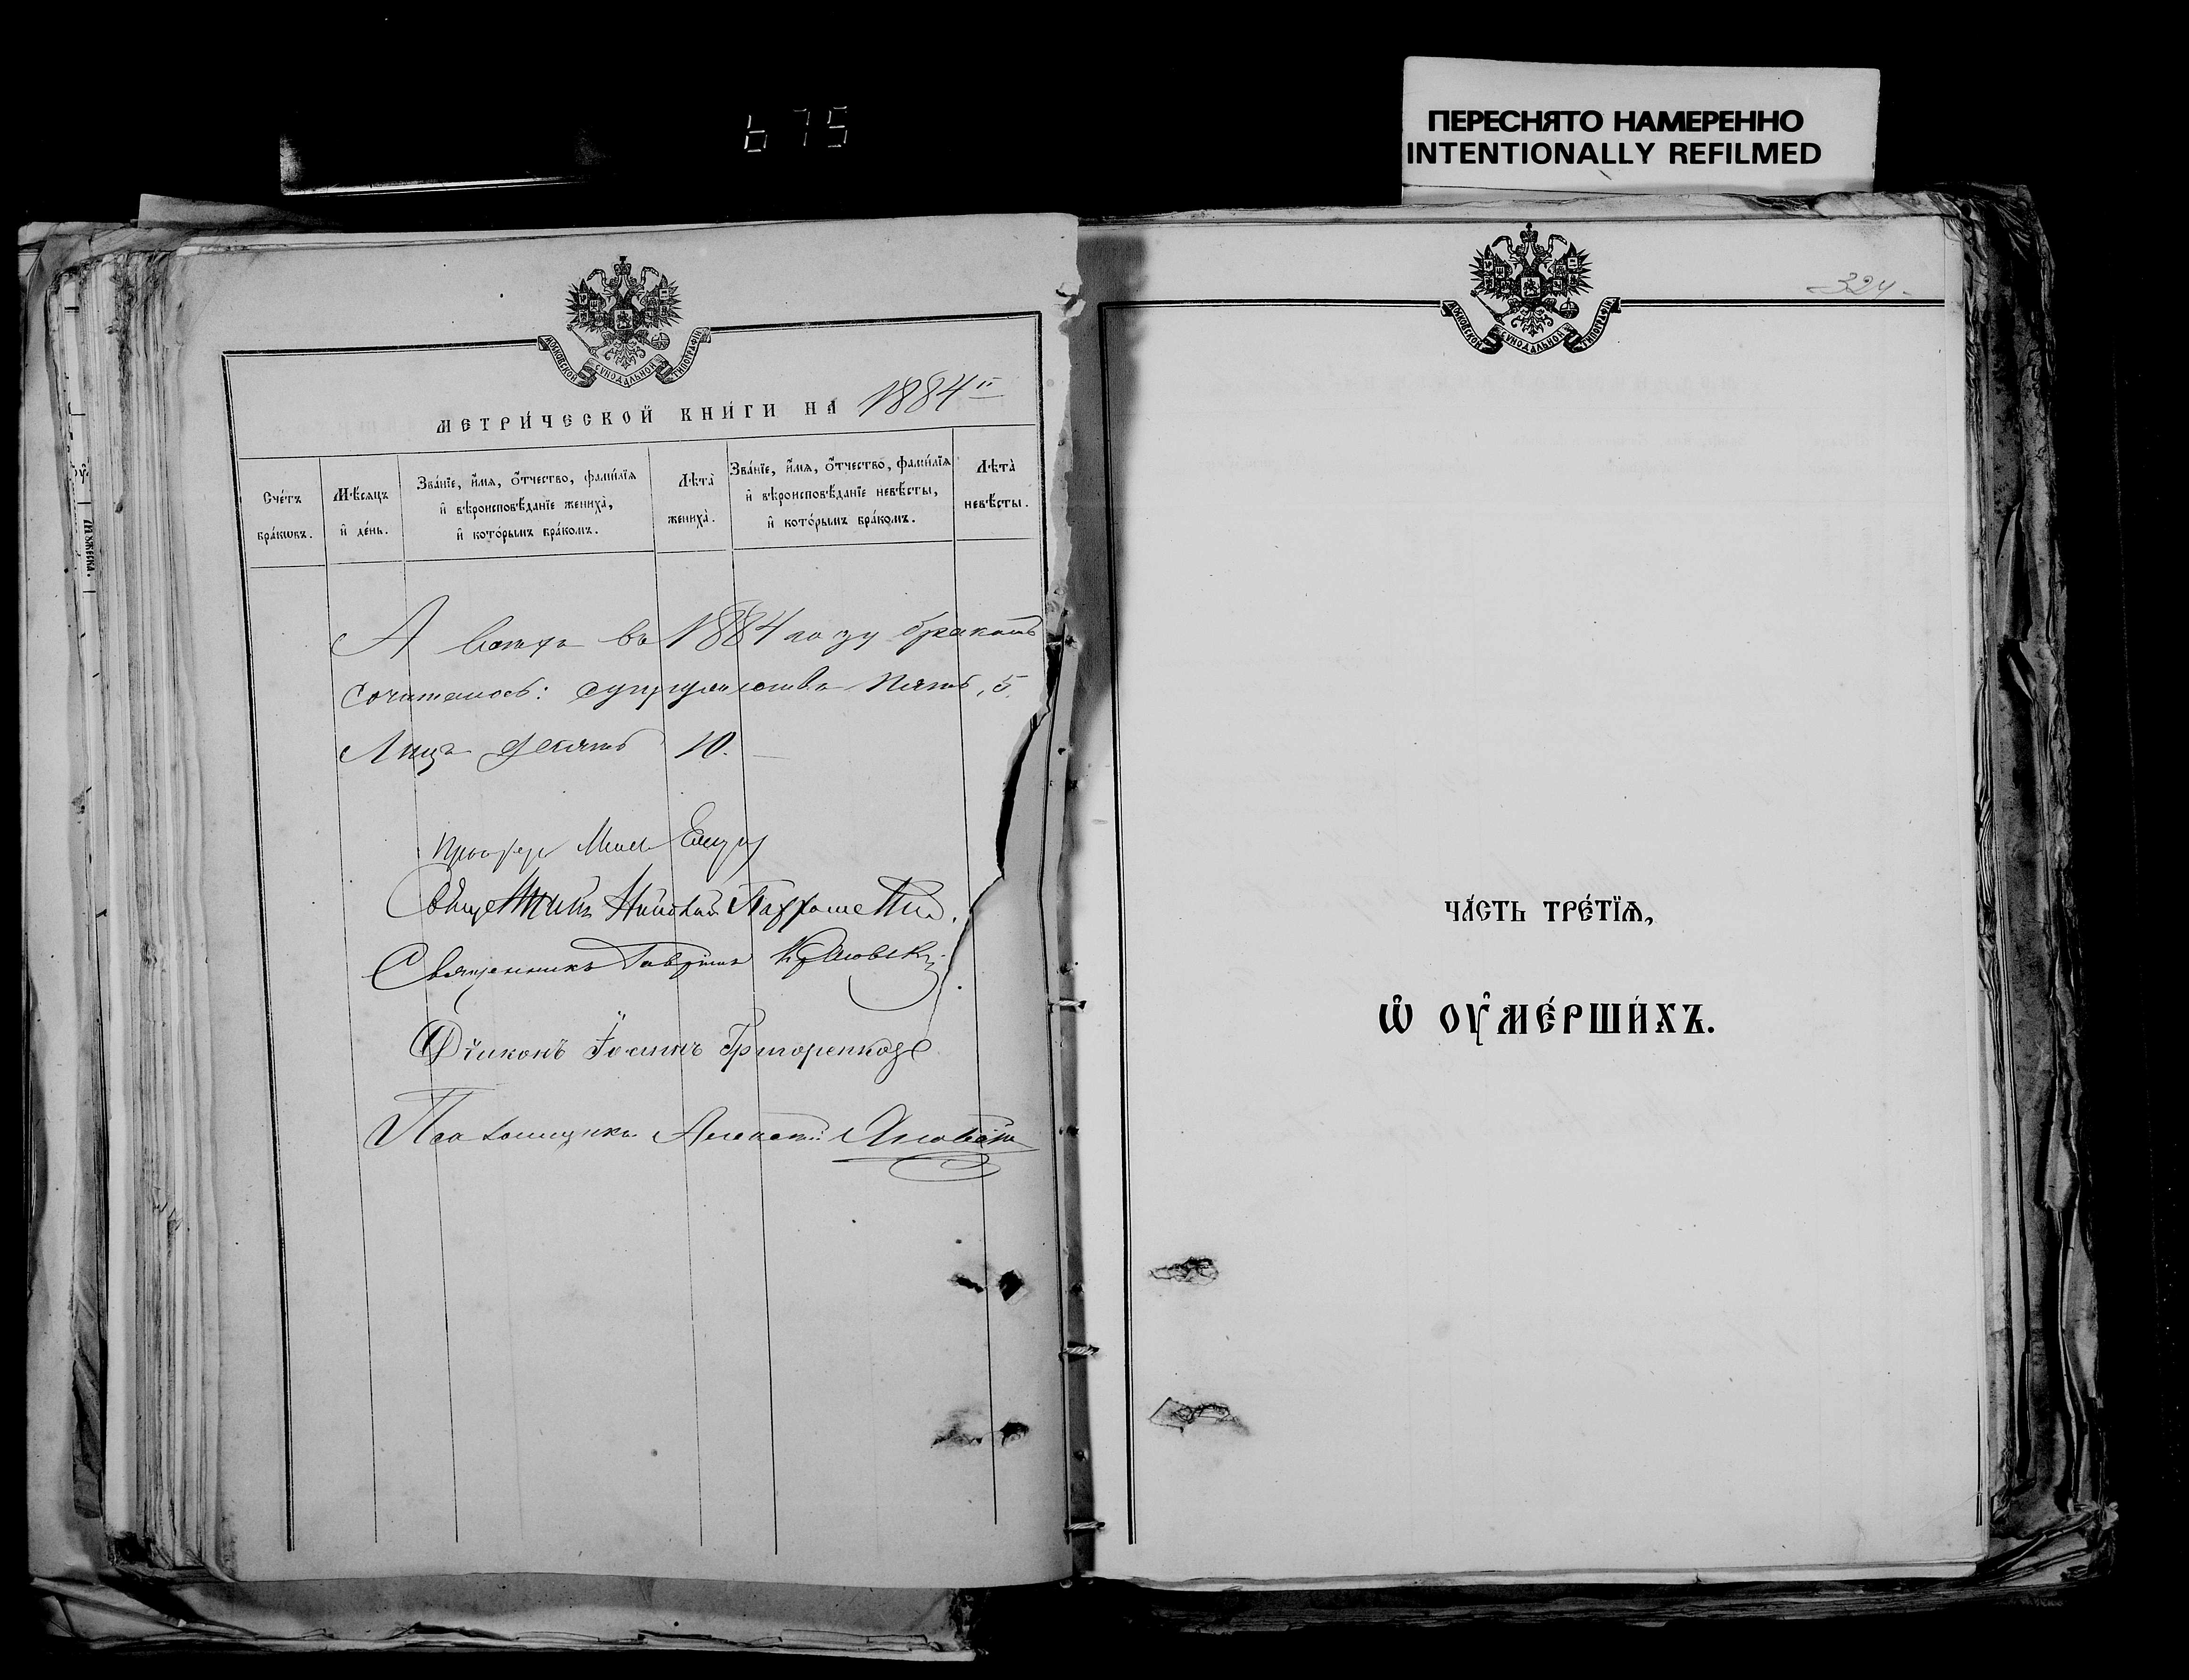 675
ПЕРЕСНЯТО НАМЕРЕННО
INTENTIONALLY REFILMED
МОСКОВСКОЙ СѴНОДАЛЬНОЙ ТИПОГРАФІИ
МЕТРИ́ЧЕСКОЙ КНИ́ГИ НА 1884й
Сче́тъ бра́кѡвъ.
Мѣ́сяцъ и҆ де́нь.
Зва́нїе, и҆́мѧ, ѻ҆́тчество, фами́лїѧ
и҆ вѣроисповѣ́данїе жениха̀,
и҆ кото́рымъ бра́комъ.
Лѣта̀ жениха̀.
Зва́нїе, и҆́мѧ, ѻ҆́тчество, фами́лїѧ
и҆ вѣроисповѣ́данїе невѣ́сты,
и҆ кото́рымъ бра́комъ.
Лѣта̀ невѣ́сты.
А всехъ въ 1884 году бракомъ
сочиталось: супружества пять, 5.
Лицъ десять 10.
Священникъ Николай
Священникъ Гавріилъ
Діаконъ Іосифъ Григоренко
Псаломщикъ Алексѣй
МОСКОВСКОЙ СѴНОДАЛЬНОЙ ТИПОГРАФІИ
324
ЧА́СТЬ ТРЕ́ТЇѦ,
Ѽ ОУ҆МЕ́РШИХЪ.